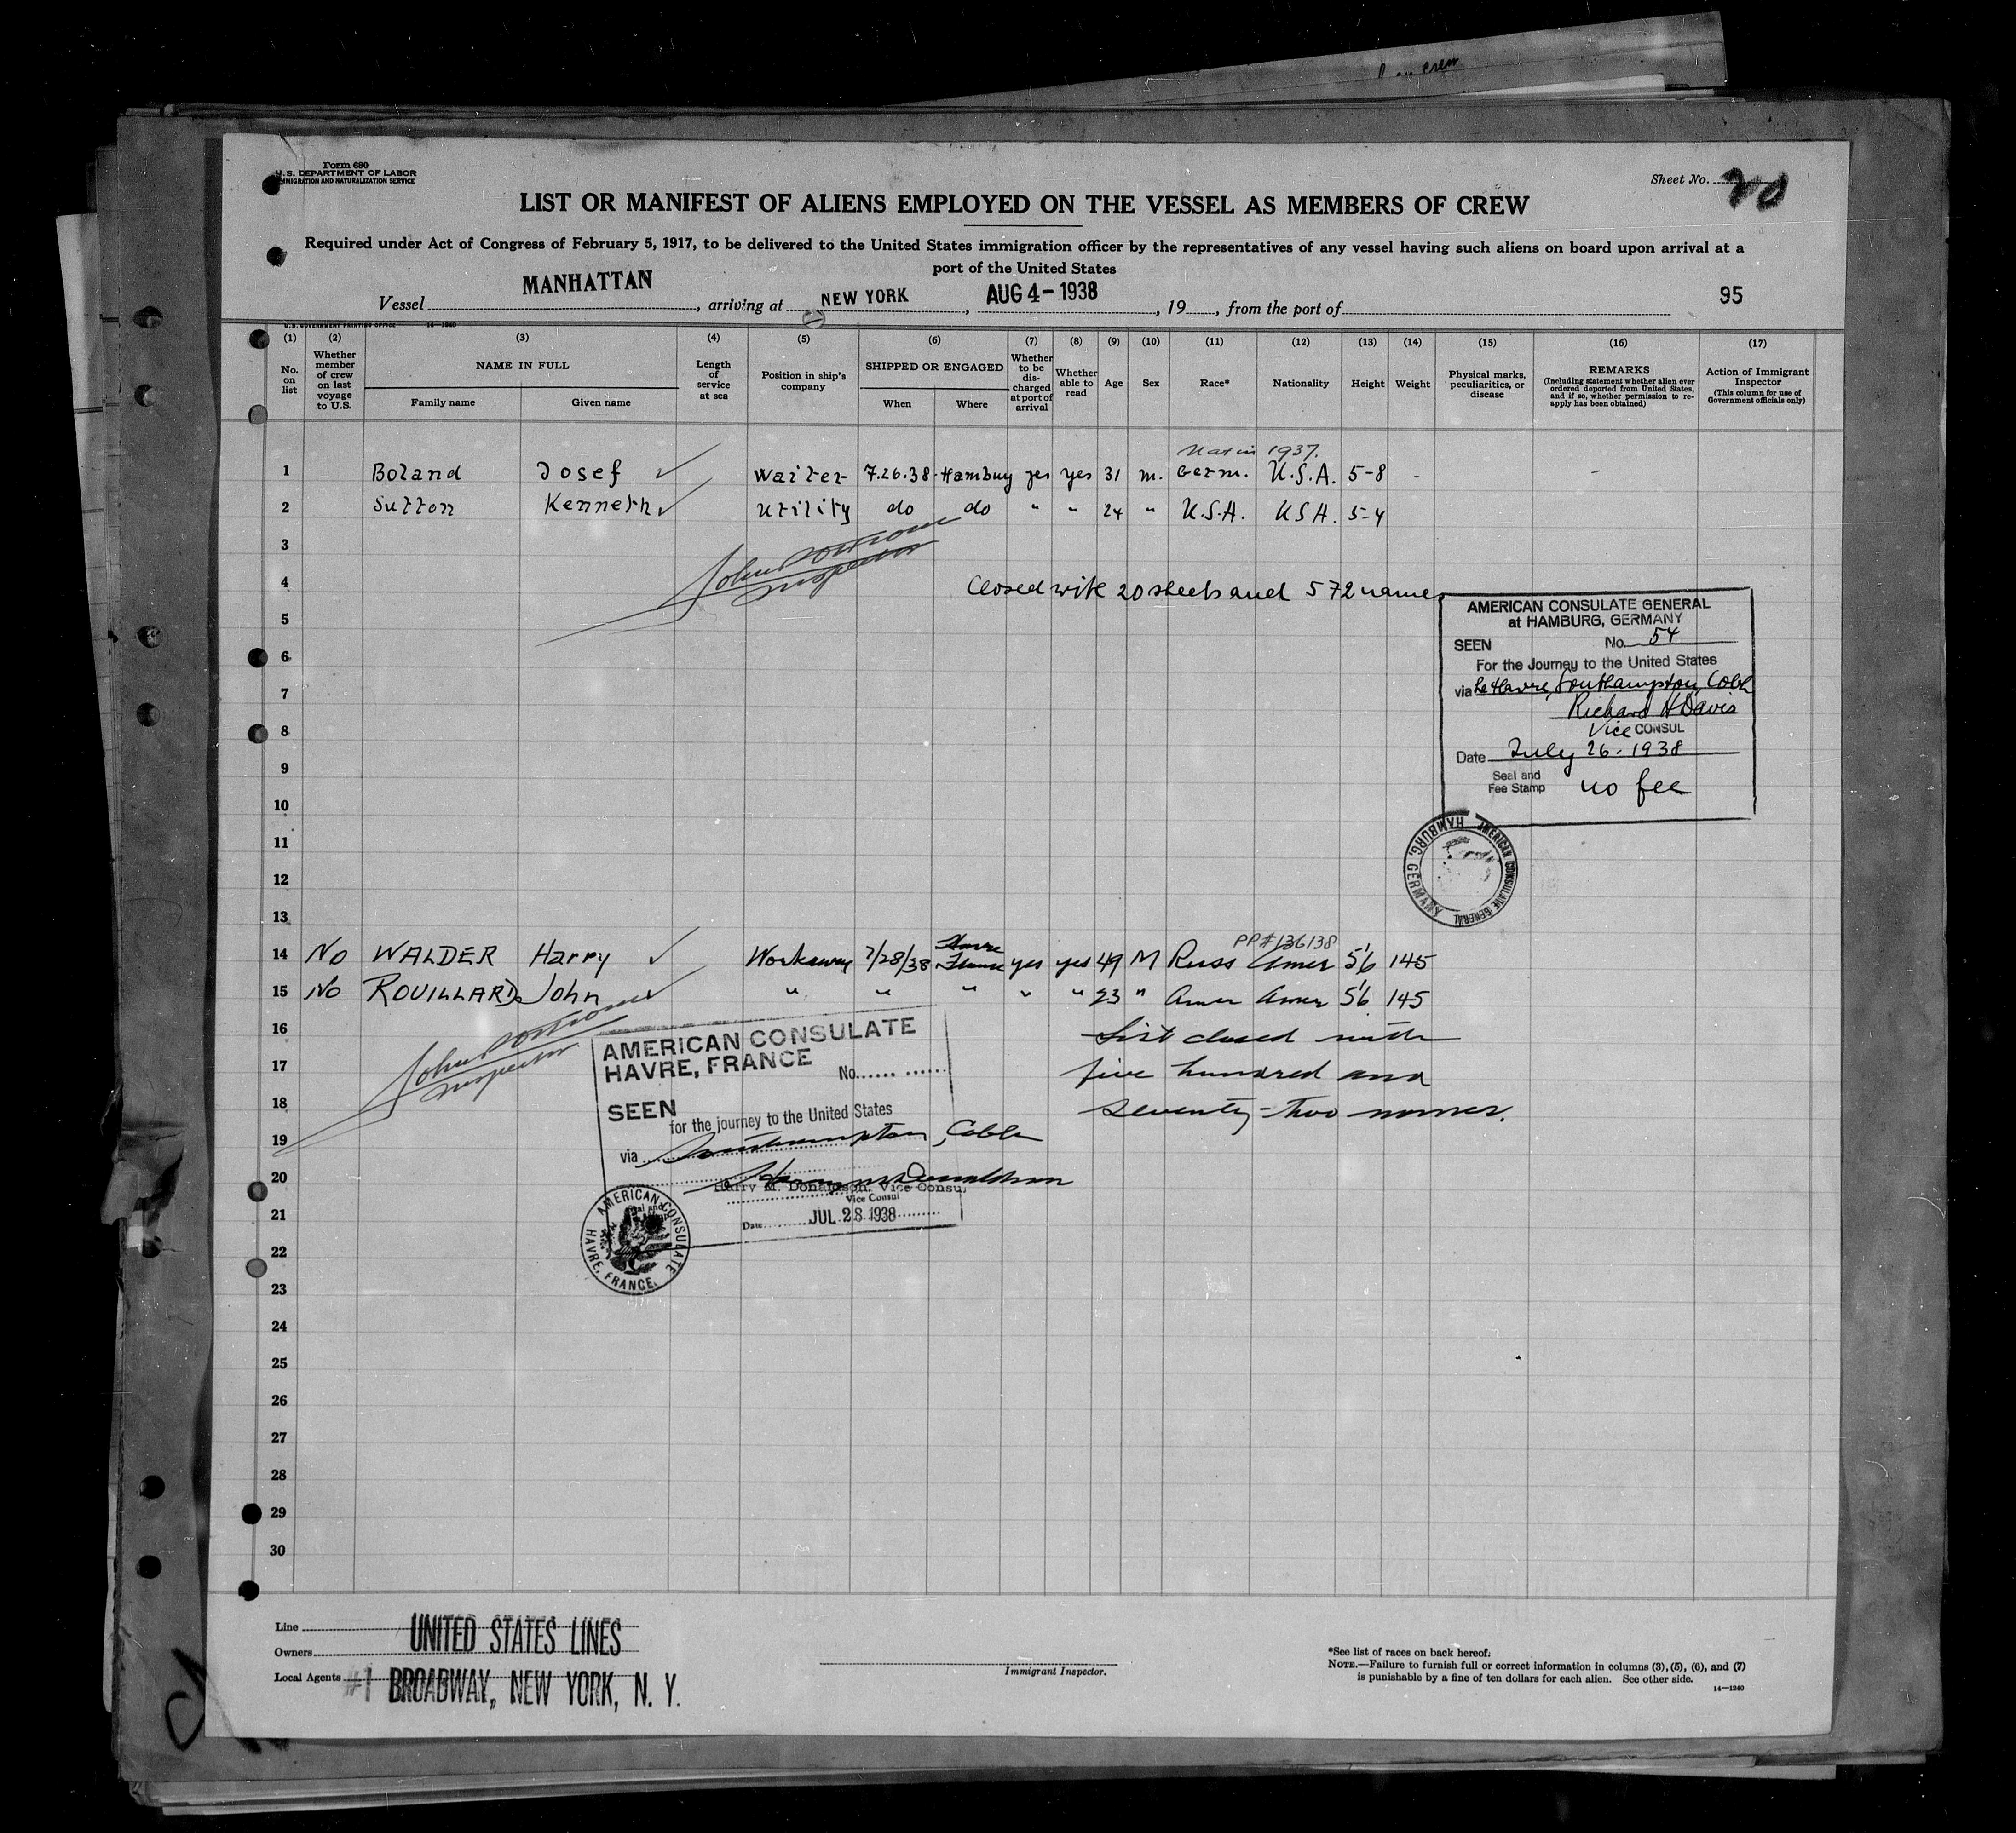 Form 680
U.S. DEPARTMENT OF LABOR
IMMIGRATION AND NATURALIZATION SERVICE
Sheet No. 20
LIST OR MANIFEST OF ALIENS EMPLOYED ON THE VESSEL AS MEMBERS OF CREW
Required under Act of Congress of February 5, 1917, to be delivered to the United States immigration officer by the representatives of any vessel having such aliens on board upon arrival at a
port of the United States
Vessel MANHATTAN, arriving at NEW YORK, AUG 4-1938, 19, from the port of 95
U.S. GOVERNMENT PRINTING OFFICE 14—1240
(1) (2) (3) (4) (5) (6) (7) (8) (9) (10) (11) (12) (13) (14) (15) (16) (17)
No. on list
Whether member of crew on last voyage to U.S.
NAME IN FULL
Family name Given name
Length of service at sea
Position in ship's company
SHIPPED OR ENGAGED
When Where
Whether to be discharged at port of arrival
Whether able to read
Age Sex Race* Nationality Height Weight
Physical marks, peculiarities, or disease
REMARKS
(Including statement whether alien ever ordered deported from United States, and if so, whether permission to reapply has been obtained)
Action of Immigrant Inspector
(This column for use of Government officials only)
Nat in 1937.
1 Boland Josef ✓ Waiter 7.26.38 Hamburg yes yes 31 m. Germ. U.S.A. 5-8 - -
2 Sutton Kenneth ✓ Utility do do " " 24 " U.S.A. USA. 5-4
3
John
Inspector
4 Closed with 20 sheets and 572 names
5
AMERICAN CONSULATE GENERAL
at HAMBURG, GERMANY
SEEN No. 54
For the Journey to the United States
via Le Havre, Southampton, Cobh
Richard H Davis
Vice CONSUL
Date July 26-1938
Seal and
Fee Stamp no fee
AMERICAN CONSULATE GENERAL HAMBURG, GERMANY
6
7
8
9
10
11
12
13
PP#136138
14 No WALDER Harry ✓ Workaway 7/28/38 Havre yes yes 49 M Russ Amer 5'6 145
15 No ROUILLARD John ✓ " " " " " 23 " Amer Amer 5'6 145
16 List closed with
17 five hundred and
18 seventy-two names.
John
Inspector
AMERICAN CONSULATE
HAVRE, FRANCE
No.
SEEN
for the journey to the United States
via Southampton, Cobh
Harry M. Donaldson, Vice Consul
Vice Consul
Date JUL 28 1938
AMERICAN CONSULATE HAVRE, FRANCE.
19
20
21
22
23
24
25
26
27
28
29
30
Line UNITED STATES LINES
Owners
Local Agents #1 BROADWAY, NEW YORK, N. Y.
Immigrant Inspector.
*See list of races on back hereof.
NOTE.—Failure to furnish full or correct information in columns (3), (5), (6), and (7)
is punishable by a fine of ten dollars for each alien. See other side.
14—1240